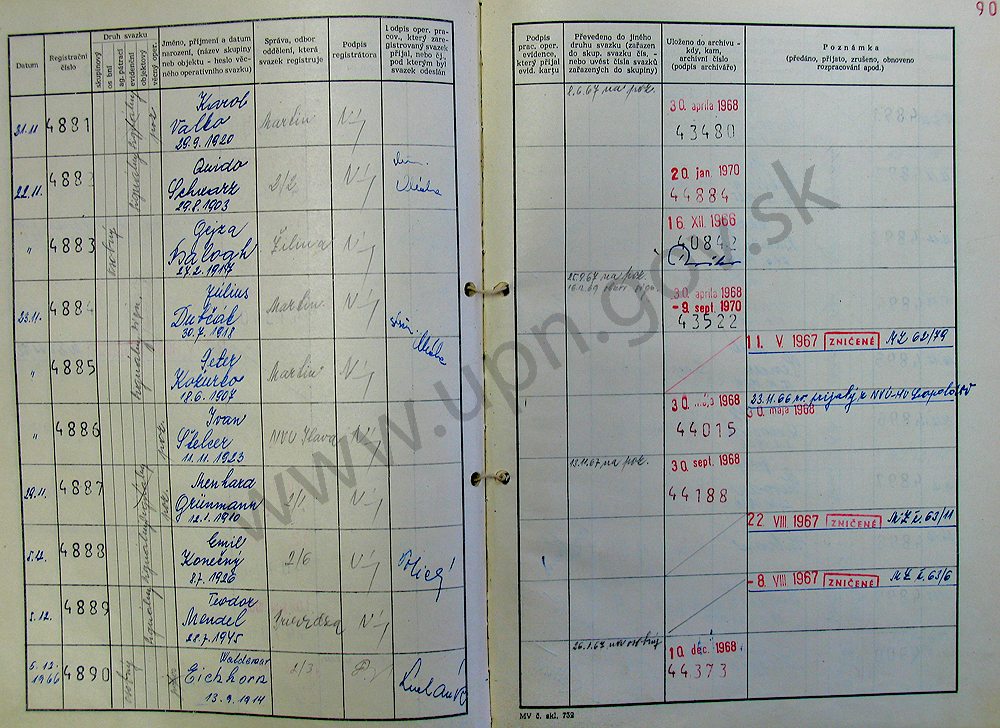 90
Datum
Registrační
číslo
Druh svazku
skupinový
os bm
ag. pátrací
evidenční
objektový
věcný oper.
Jméno, příjmení a datum
narození, (název skupiny
neb objektu - heslo věc-
ného operativního svazku)
Správa, odbor
oddělení, která
svazek registruje
Podpis
registrátora
Podpis oper. pra-
cov., který zare-
gistrovaný svazek
přijal, nebo čj.,
pod kterým byl
svazek odeslán
Podpis
prac. oper.
evidence,
který přijal
evid. kartu
Převedeno do jiného
druhu svazku (zařazen
do skup. svazku čís. -
nebo uvést čísla svazků
zařazených do skupiny)
Uloženo do archivu -
kdy, kam,
archivní číslo
(podpis archiváře)
Poznámka
(předáno, přijato, zrušeno, obnoveno
rozpracování apod.)
21.11. 4881 signálny poz. Karol
Valko
29.9.1920 Martin
8.6.67 na poz. 30. apríla 1968
43480
22.11. 4882 signálny Quido
Schwarz
29.8.1903 2/2
20. jan. 1970
44884
" 4883 osobný Gejza
Balogh
27.2.1917 Žilina
16. XII. 1966
40842
23.11. 4884 Július
Dutčák
30.7.1918 Martin
25.9.67 na poz. 30. apríla 1968
- 9. sept. 1970
43522
" 4885 Peter
Kokurco
18.6.1907 Martin
11. V 1967 ZNIČENÉ MZ 62/79
" 4886 poz. Ivan
Štelcer
11.11.1923 NVU Ilava
30. mája 1968
44015
23.11.66 prijatý z NVÚ-MV Leopoldov
30. maja 1968
29.11. 4887 poz. Menhard
Grünmann
12.1.1910 2/1
13.11.67 na poz. 30. sept. 1968
44188
5.12. 4888 signálny Emil
Konečný
8.7.1926 2/6
22. VIII 1967 ZNIČENÉ MZ č. 63/11
5.12. 4889 signálny Teodor
Mendel
28.7.1945 Prievidza
- 8. VIII 1967 ZNIČENÉ MZ č. 63/6
6.12.
1966 4890 osobný Waldemar
Eichhorn
13.9.1914 2/3.
26.1.67 osobný 10. dec. 1968
44373
MV č. skl. 752
www.upn.gov.sk